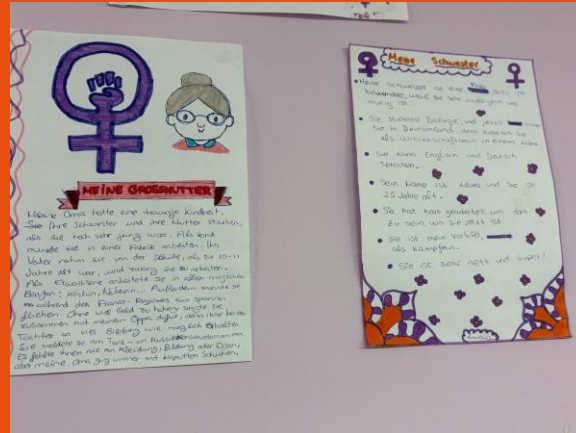 MEINE GROSSMUTTER
Meine Oma hatte eine traurige Kindheit.
Ihre Schwester und ihre Mutter starben,
als sie noch sehr jung war. Als Kind
musste sie in einer Fabrik arbeiten. Ihr
Vater nahm sie von der Schule, als sie 10-11
Jahre alt war, und sie zu arbeiten.
Als Erwachsene arbeitete sie in allen möglichen
Berufen: Köchin, Näherin... Außerdem musste sie
während des Franco-Regimes aus Spanien
fliehen. Ohne viel Geld zu haben, sorgte sie
zusammen mit meinem Opa dafür, dass ihre beiden
Töchter so viel Bildung wie möglich erhielten.
Sie meldete sie am Tanz- an.
Es fehlte ihnen nie an Kleidung, Bildung oder Essen,
aber meine Oma ging immer mit kaputten Schuhen.
Meine Schwester
Meine Schwester ist eine Frau, dass ich
bewundere, weil sie sehr intelligent und
mutig ist.
Sie studierte Biologie, und jetzt
sie in Deutschland; dann arbeitet sie
als Wissenschaftlerin in einem
Sie kann Englisch und Deutsch
sprechen.
Sein Name ist Laura und sie ist
25 Jahre alt.
Sie hat hart gearbeitet, um dort
zu sein, wo sie jetzt ist.
Sie ist mein Vorbild,
als Kämpferin.
Sie ist sehr nett und super!